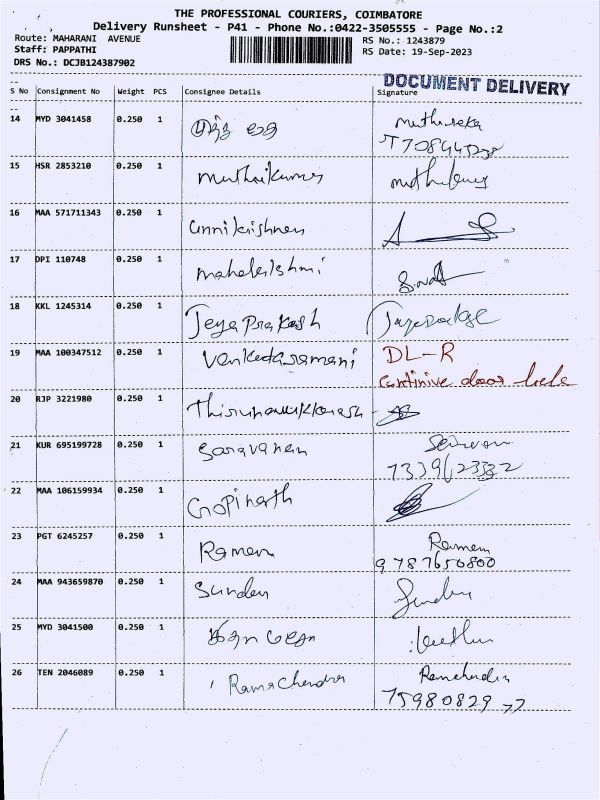 THE PROFESSIONAL COURIERS, COIMBATORE
Delivery Runsheet - P41 - Phone No.:0422-3505555 - Page No.:2
Route: MAHARANI AVENUE
RS No.: 1243879
Staff: PAPPATHI
RS Date: 19-Sep-2023
DRS No.: DCJB124387902
DOCUMENT DELIVERY
S No Consignment No Weight PCS Consignee Details Signature
14 MYD 3041458 0.250 1
15 HSR 2853210 0.250 1 Muthukumar
16 MAA 571711343 0.250 1 Unnikrishnan
17 DPI 110748 0.250 1 Mahalakshmi
18 KKL 1245314 0.250 1 Jeya Prakash
19 MAA 100347512 0.250 1 Venkataramani DL-R
door
20 RJP 3221980 0.250 1
21 KUR 695199728 0.250 1 Saravanan
22 MAA 106159934 0.250 1 Gopinath
23 PGT 6245257 0.250 1 Raman Raman
9787650800
24 MAA 943659870 0.250 1 Sundar
25 MYD 3041500 0.250 1
26 TEN 2046089 0.250 1 Ramachandra
7598082977